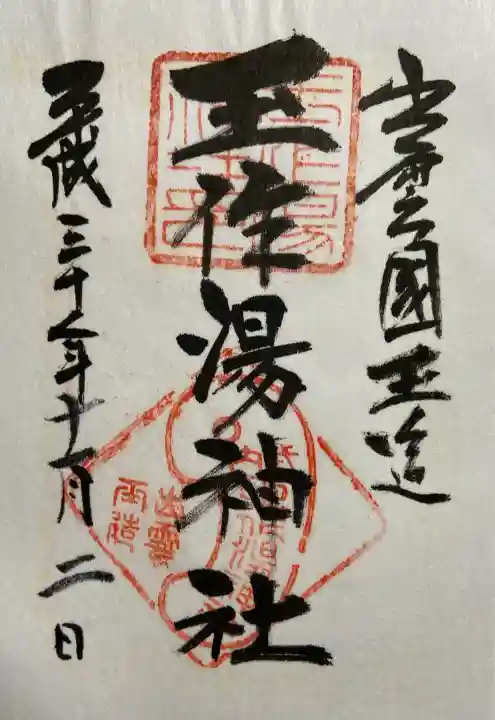 出雲國玉造
玉作湯神社
平成三十年十一月二日
出雲
玉造